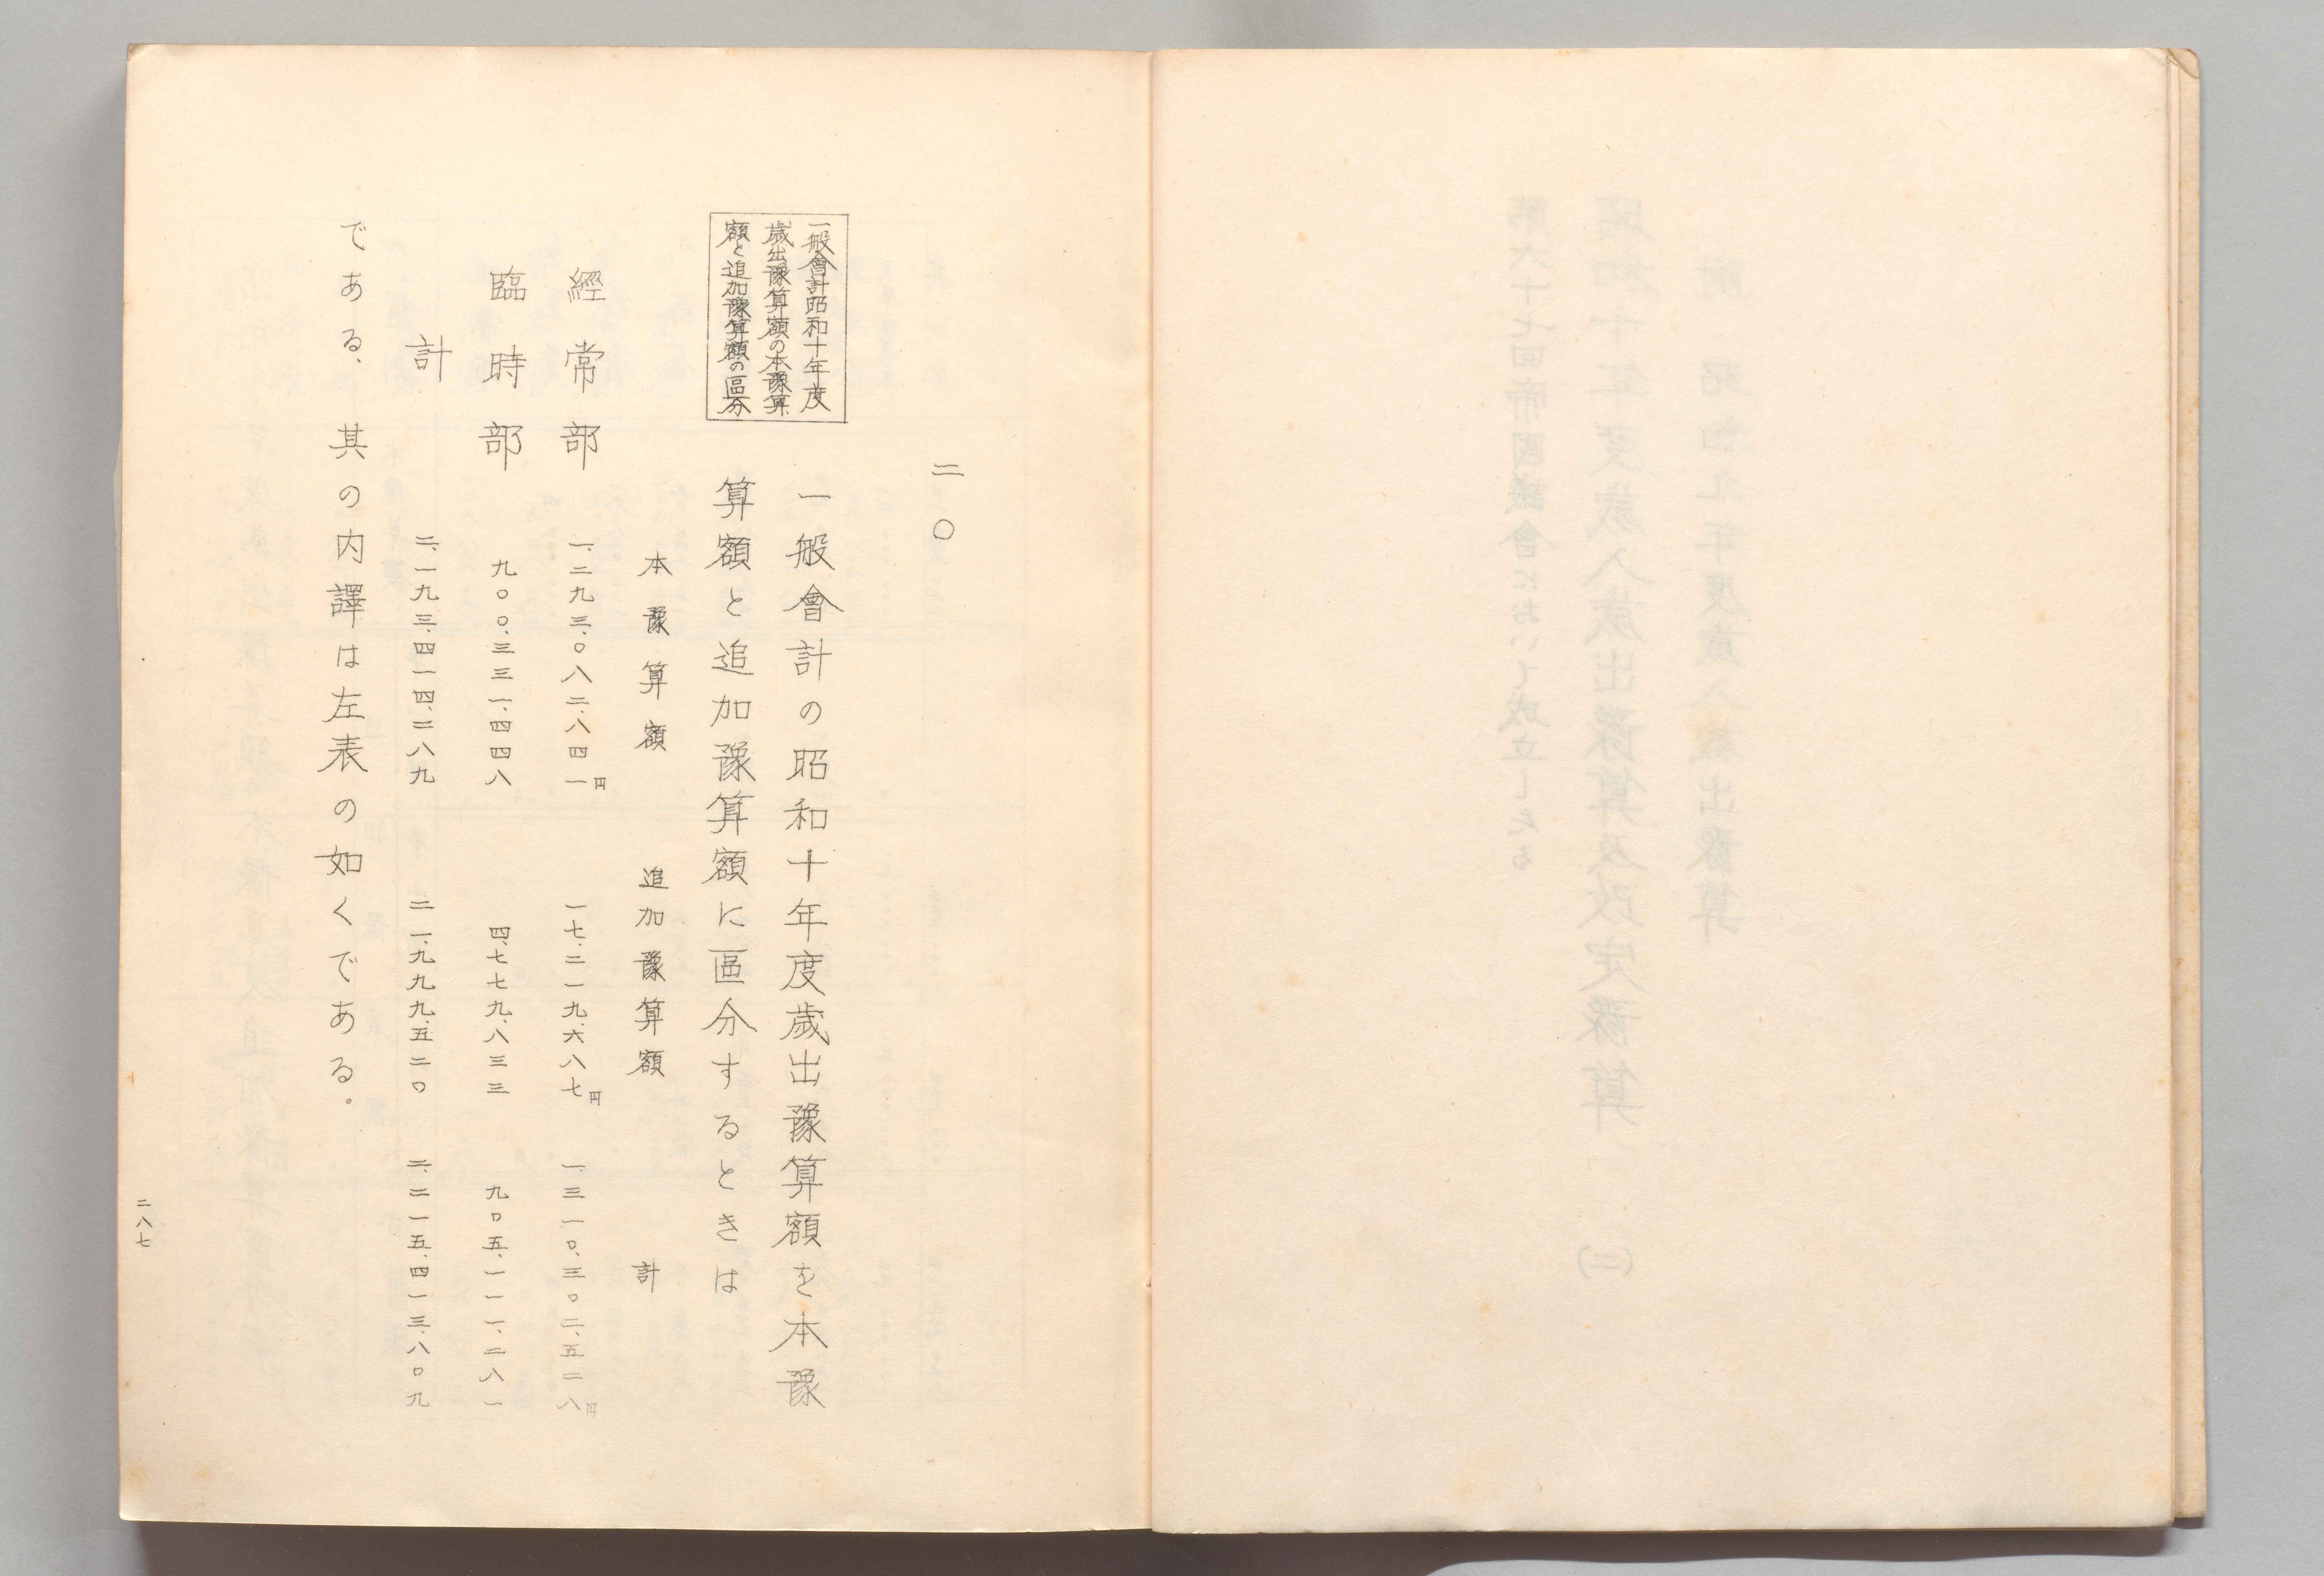 二〇
一般會計昭和十年度
歳出豫算額の本豫算
額と追加豫算額の區分
一般會計の昭和十年度歳出豫算額を本豫
算額と追加豫算額に區分するときは
本豫算額 追加豫算額 計
經常部 一、二九三、〇八二、八四一円 一七、二一九、六八七円 一、三一〇、三〇二、五二八円
臨時部 九〇〇、三三一、四四八 四、七七九、八三三 九〇五、一一一、二八一
計 二、一九三、四一四、二八九 二一、九九九、五二〇 二、二一五、四一三、八〇九
である、其の内譯は左表の如くである。
二八七